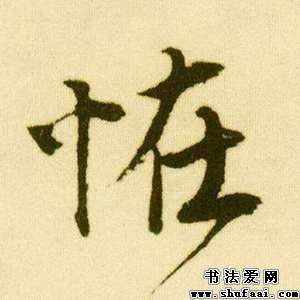 恠
书法爱网
www.shufaai.com